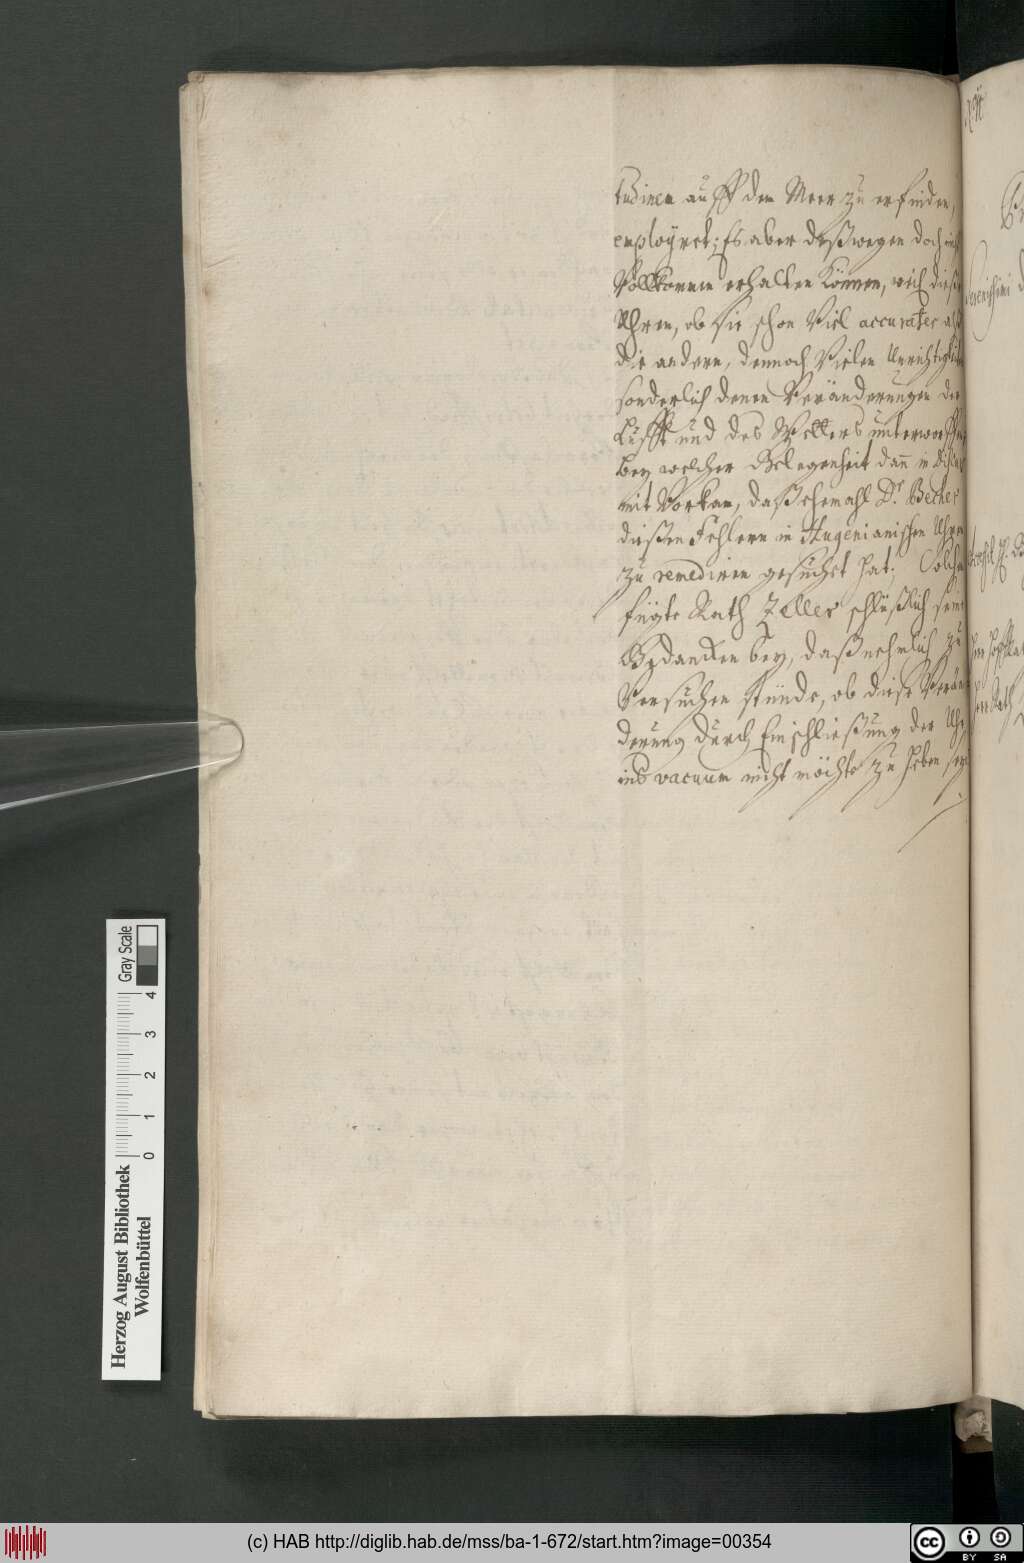 tudinem auff dem Meer zu erfinden,
employret; Es aber deßwegen doch
Vollkomen erhalten können, weil dieße
Uhren, ob sie schon Viel accurater alß
die andern, dennoch Vielen Unrichtigkeit
sonderlich denen Veränderungen der
Lufft und des Wetters unterworffen
bey welcher Gelegenheit dañ in discurs
mit Vorkam, daß ehemahl Dr. Becher
dießen Fehlern in Hugenianischen Uhren
zu remediren gesuchet hat; Solchem
fügte Rath Zeller schlüßlich seine
Gedancken bey, daß nehmlich zu
Versuchen stünde, ob diese Verän
derung durch Einschließung der Uhr
ins vacuum nicht möchte zu heben sey
Serenissimi
Herr Rath
Gray Scale
0 1 2 3 4
Herzog August Bibliothek
Wolfenbüttel
(c) HAB http://diglib.hab.de/mss/ba-1-672/start.htm?image=00354
cc BY SA